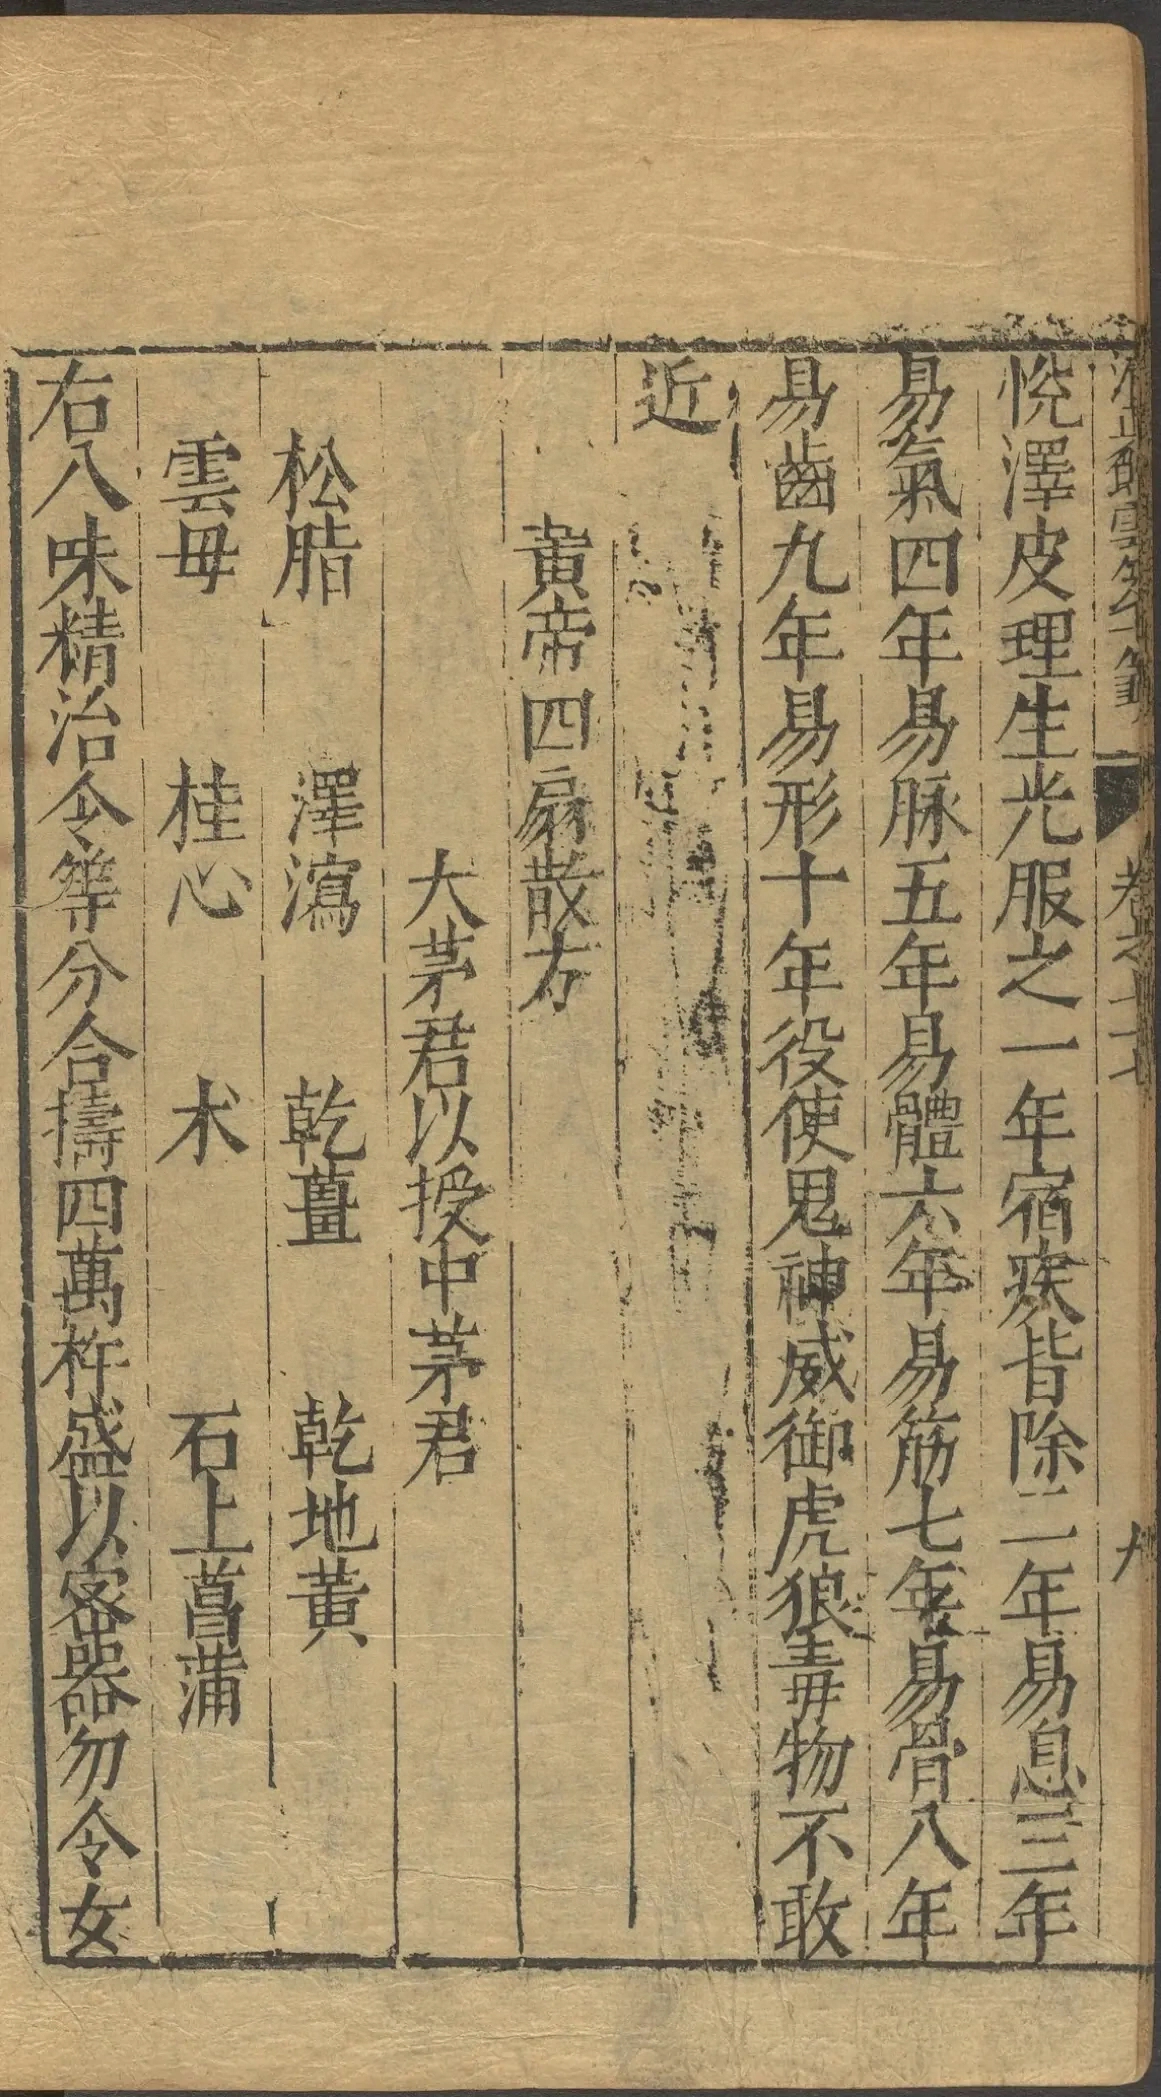 清真館雲笈七籤 卷之七十七 九
悅澤皮理生光服之一年宿疾皆除二年易息三年
易氣四年易脉五年易體六年易筋七年易骨八年
易齒九年易形十年役使鬼神威御虎狼毒物不敢
近
黃帝四扇散方
大茅君以授中茅君
松脂 澤瀉 乾薑 乾地黃
雲母 桂心 朮 石上菖蒲
右八味精治令等分合擣四萬杵盛以密器勿令女